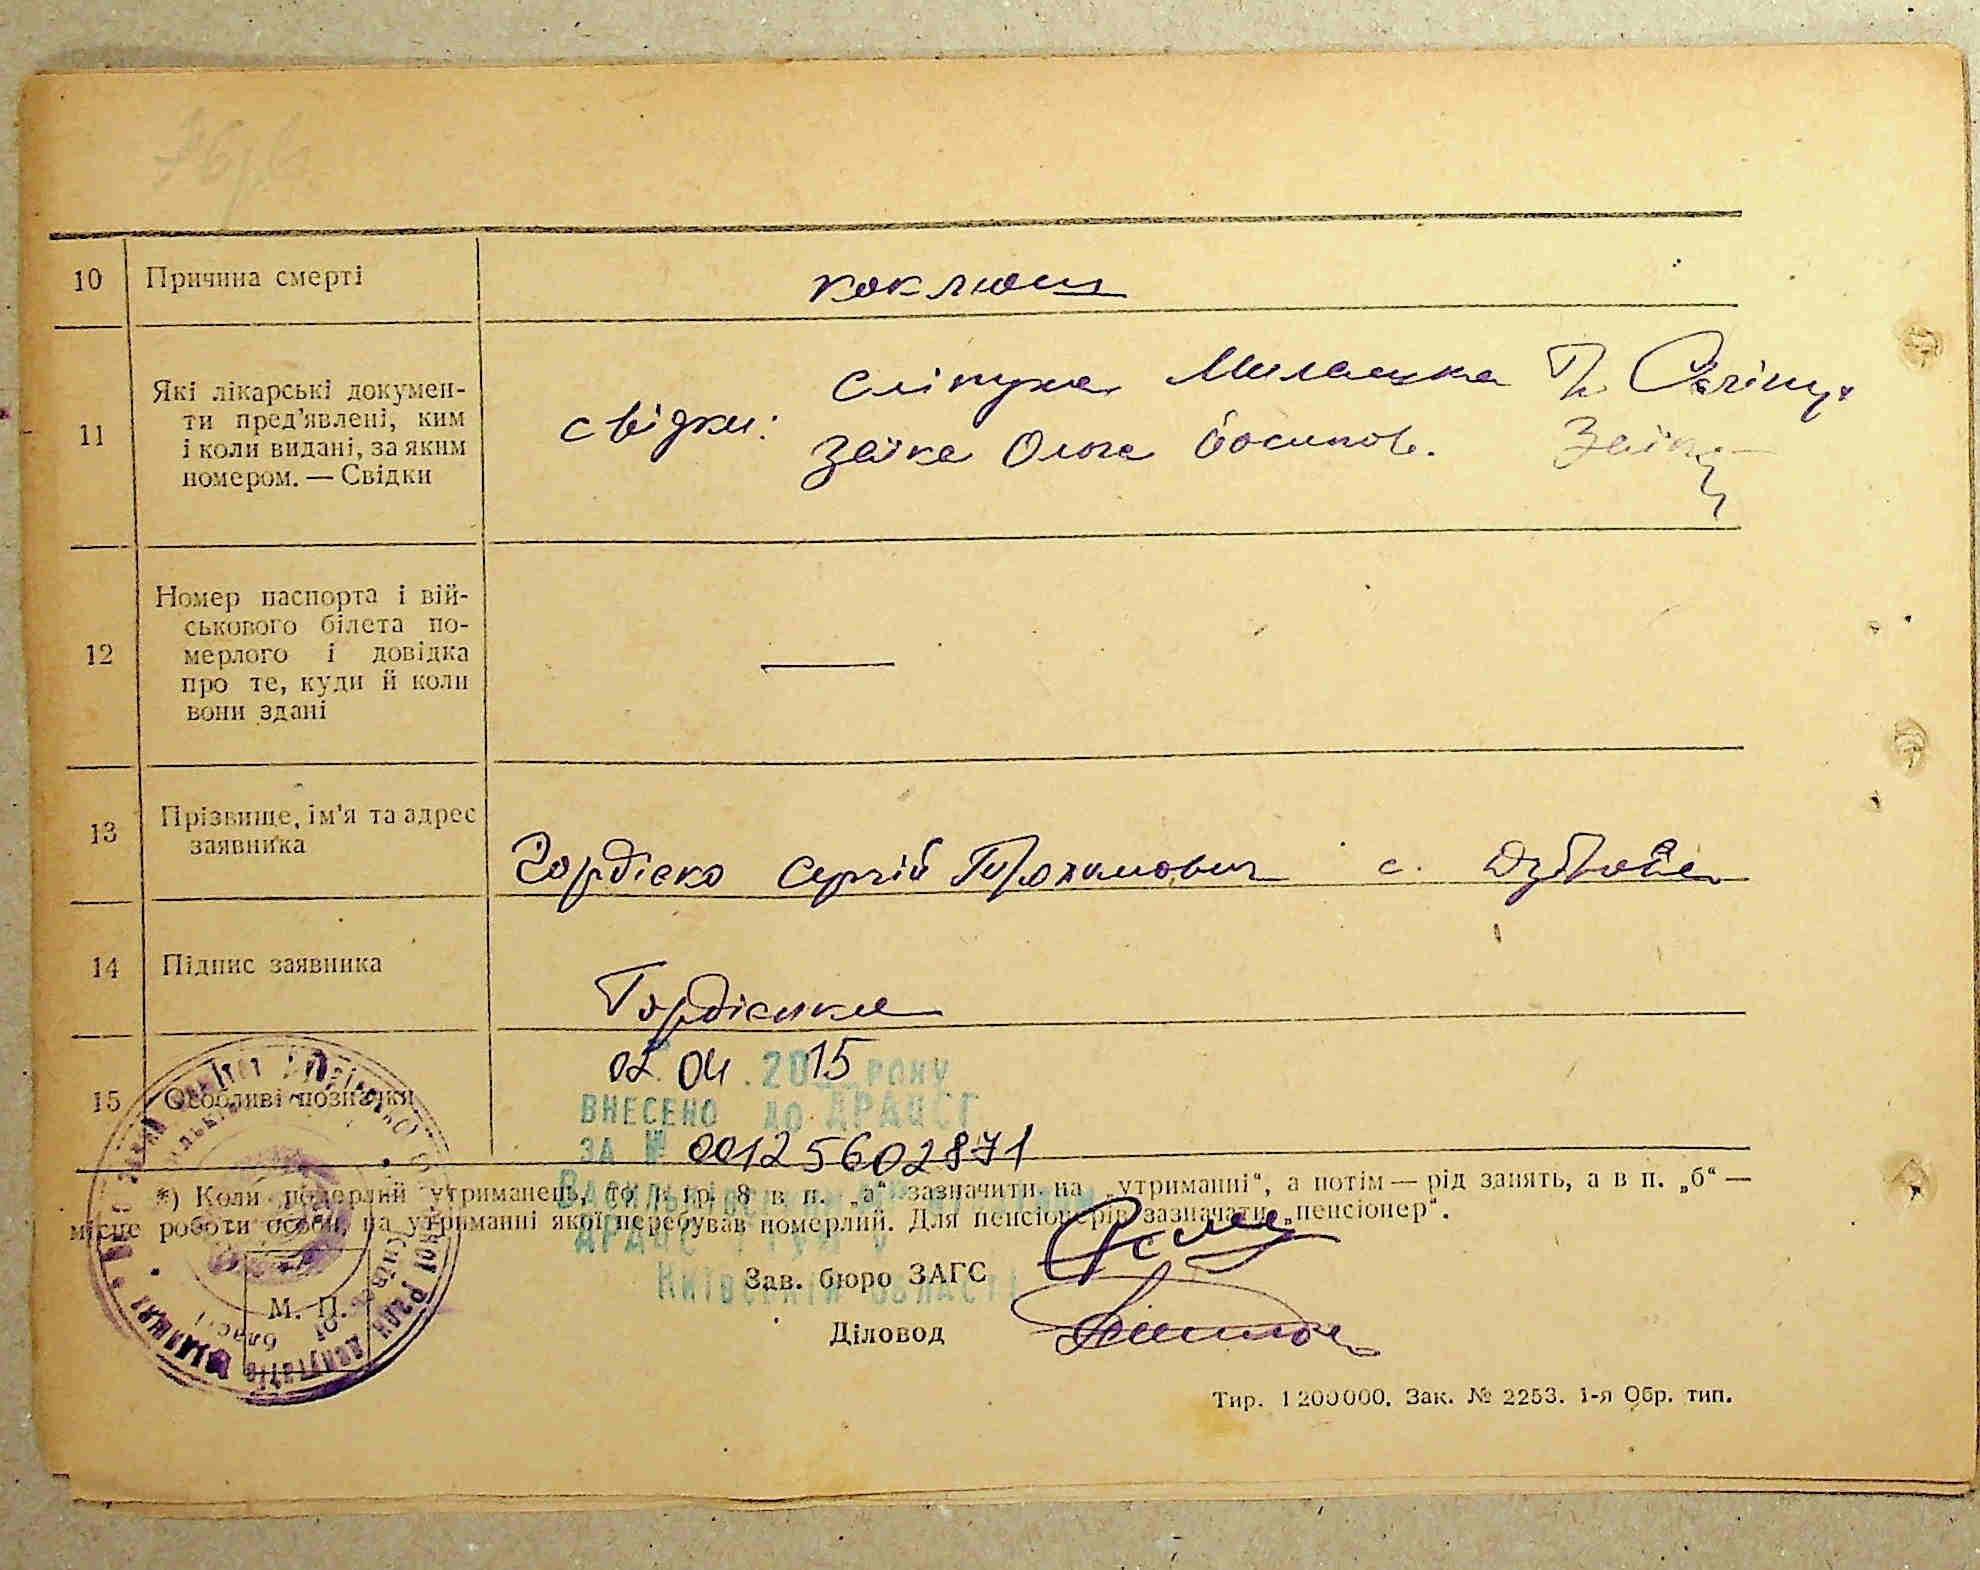 10 Причина смерті коклюш
11 Які лікарські докумен-
ти пред'явлені, ким
і коли видані, за яким
номером. — Свідки
свідки: Сліпуха
Заїка Ольга Йосипов. Заїка
12 Номер паспорта і вій-
ськового білета по-
мерлого і довідка
про те, куди й коли
вони здані
—
13 Прізвище, ім'я та адрес
заявника
Гордієко Сергій с.
14 Підпис заявника
Гордієнко
02.04.2015 РОКУ
15 Особливі позначки
ВНЕСЕНО ДО ДРАЦСГ
ЗА № 00125602871
*) Коли померлий утриманець, то в гр. 8 в п. „а“ зазначити на „утриманні“, а потім — рід занять, а в п. „б“ —
місце роботи особи, на утриманні якої перебував померлий. Для пенсіонерів зазначати „пенсіонер“.
Зав. бюро ЗАГС
КИЇВСЬКІЙ ОБЛАСТІ
М. П.
Діловод
Тир. 1 200 000. Зак. № 2253. 1-я Обр. тип.